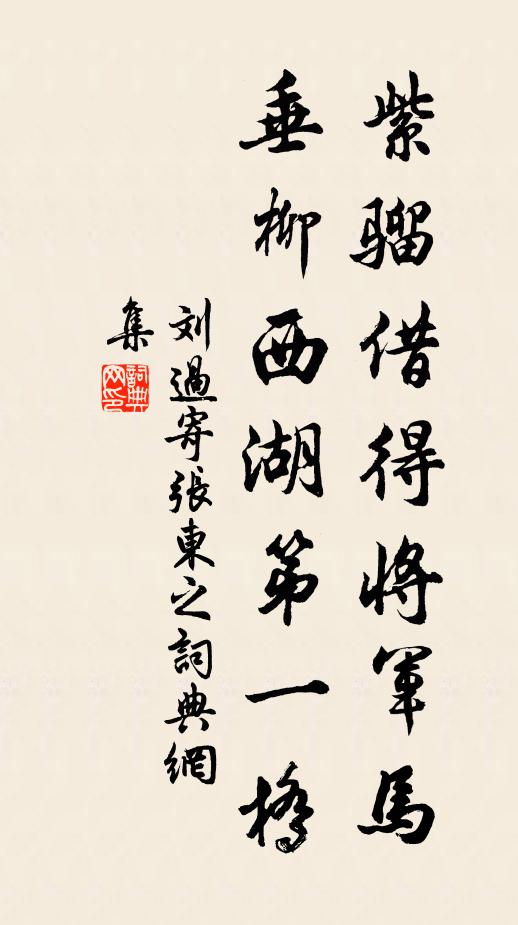 紫骝借得將軍馬
垂柳西湖第一橋
刘過寄張東之詞典網
集
詞典網印